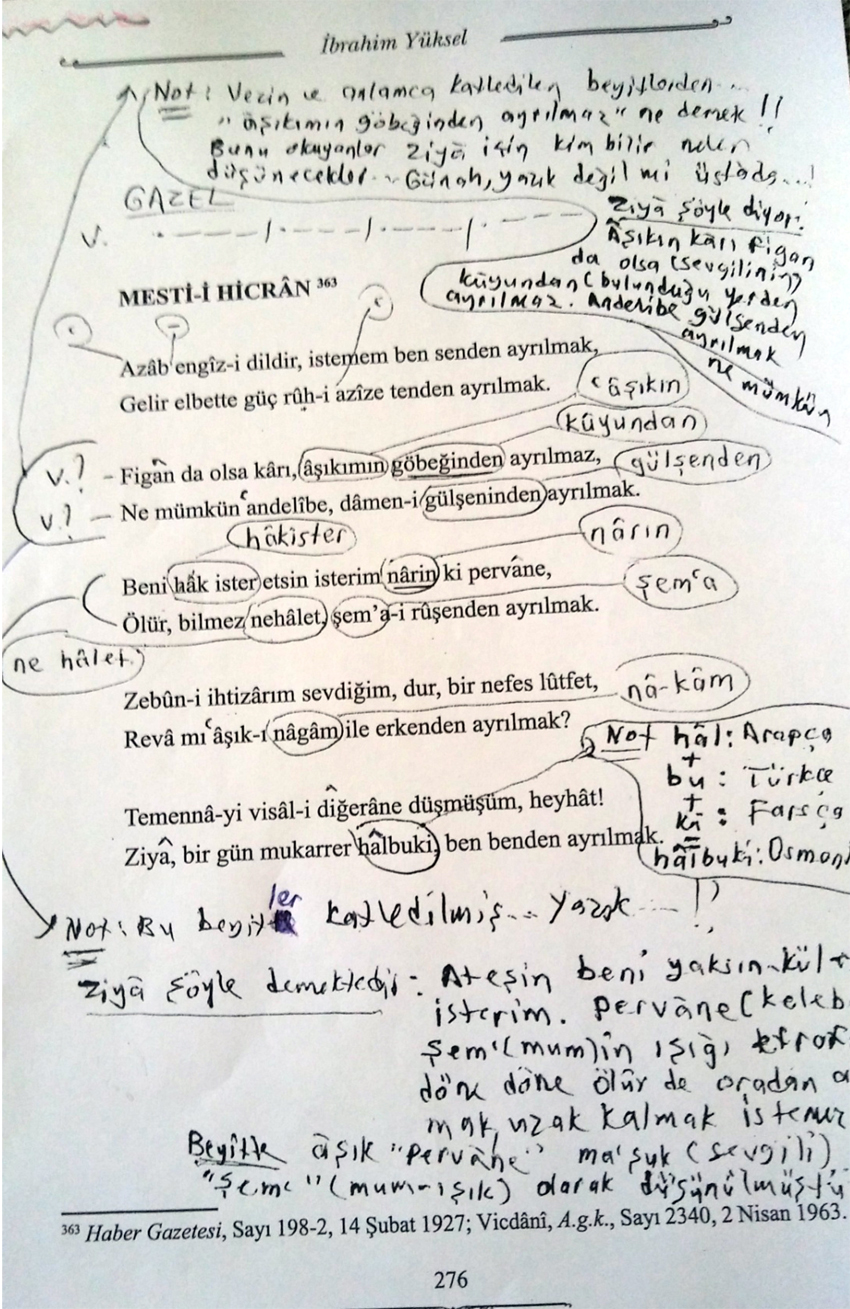 İbrahim Yüksel
Not: Vezin ve anlamca katledilen beyitlerden...
"âşıkımın göbeğinden ayrılmaz" ne demek !!
Bunu okuyanlar Ziyâ için kim bilir neler
düşünecekler... Günah, yazık değil mi üstada...!
GAZEL
V. . — — — / . — — — / . — — — / . — — —
Ziyâ şöyle diyor:
Âşıkın kârı figan
da olsa (sevgilinin)
kûyundan (bulunduğu yerden)
ayrılmaz. Andelibe gülşenden
ayrılmak
ne mümkün
MESTİ-İ HİCRÂN 363
Azâb engîz-i dildir, istemem ben senden ayrılmak,
Gelir elbette güç rûh-i azîze tenden ayrılmak.
âşıkın
kûyundan
V.? – Figân da olsa kârı, âşıkımın göbeğinden ayrılmaz,
gülşenden
V? – Ne mümkün andelîbe, dâmen-i gülşeninden ayrılmak.
hâkister
nârın
Beni hâk ister etsin isterim nârin ki pervâne,
şem'a
Ölür, bilmez nehâlet, şem'a-i rûşenden ayrılmak.
ne hâlet
Zebûn-i ihtizârım sevdiğim, dur, bir nefes lûtfet,
nâ-kâm
Revâ mı âşık-ı nâgâm ile erkenden ayrılmak?
Not hâl: Arapça
+
bu: Türkçe
+
ki: Farsça
=
hâlbuki: Osman
Temennâ-yi visâl-i diğerâne düşmüşüm, heyhât!
Ziyâ, bir gün mukarrer hâlbuki, ben benden ayrılmak.
Not: Bu beyitler katledilmiş... Yazık ...!?
Ziyâ şöyle demektedir: Ateşin beni yaksın kül
isterim. Pervâne (keleb
Şem' (mum)in ışığı etraf
döne döne ölür de oradan a
mak, uzak kalmak istemez
Beyitte âşık "pervâne" ma'şuk (sevgili)
"şem'" (mum-ışık) olarak düşünülmüştü
363 Haber Gazetesi, Sayı 198-2, 14 Şubat 1927; Vicdânî, A.g.k., Sayı 2340, 2 Nisan 1963.
276